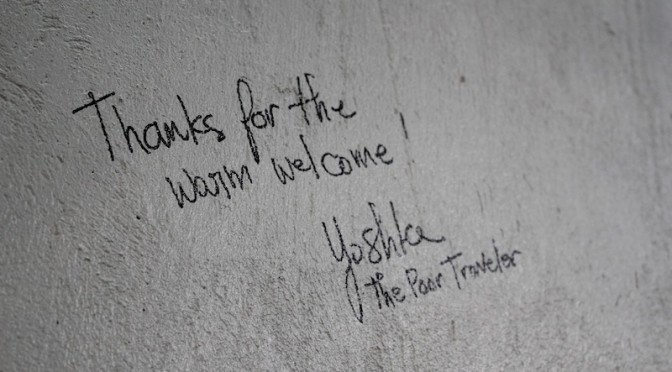 Thanks for the
warm welcome!
Yoshka
the Poor Traveler